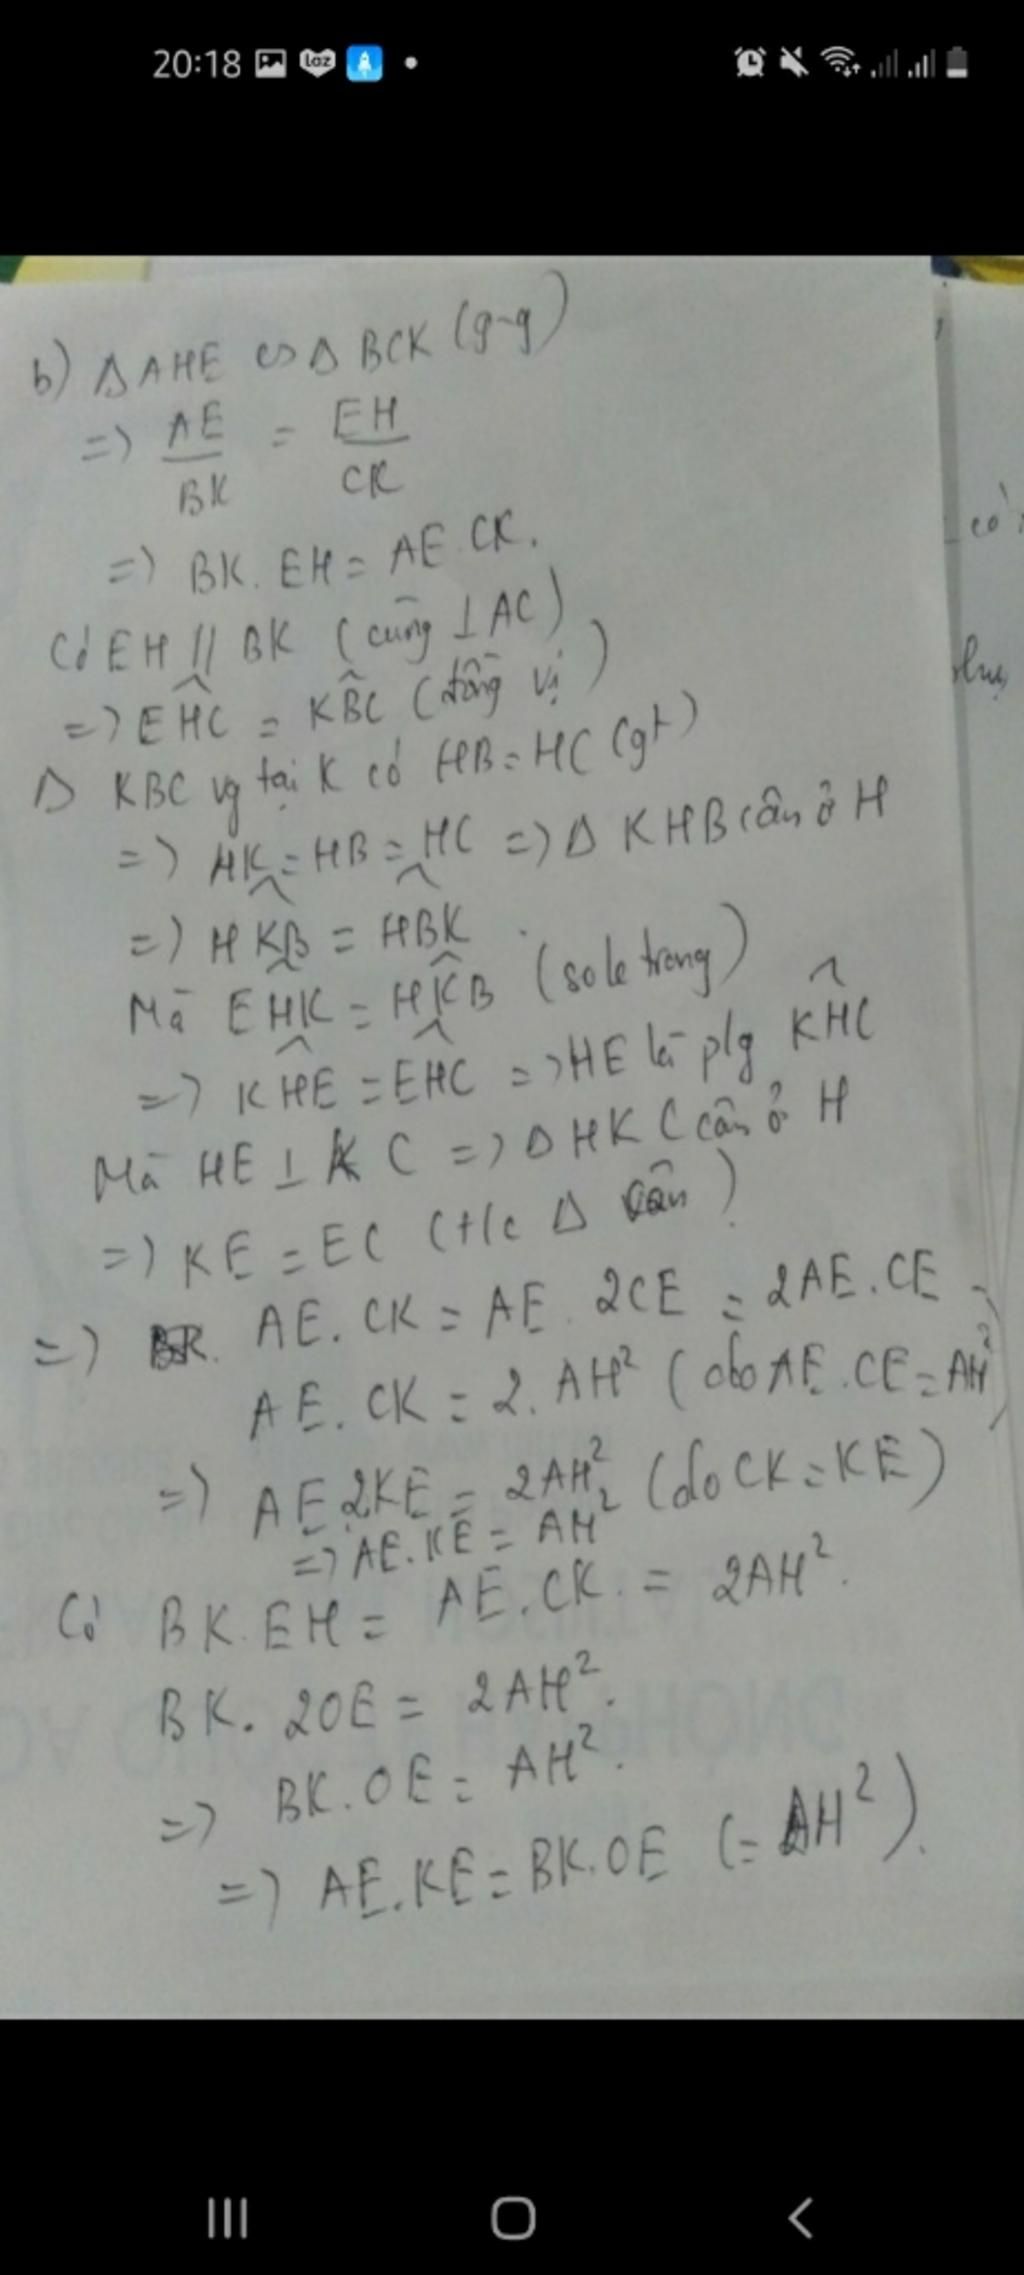 20:18
b) Δ AHE ∽ Δ BCK (g-g)
=> AE/BK = EH/CK
=> BK. EH = AE.CK.
Có EH // BK (cùng ⊥ AC)
=> EĤC = KB̂C (đồng vị)
Δ KBC vg tại K có HB = HC (gt)
=> HK = HB = HC => Δ KHB cân ở H
=> HK̂B = HB̂K
Mà EĤK = HK̂B (so le trong)
=> KĤE = EĤC => HE là p/g KĤC
Mà HE ⊥ KC => Δ HKC cân ở H
=> KE = EC (t/c Δ cân)
=> AE. CK = AE. 2CE = 2AE.CE
AE. CK = 2. AH² (do AE.CE = AH²)
=> AE.2KE = 2AH² (do CK = KE)
=> AE.KE = AH²
Có BK.EH = AE.CK. = 2AH².
BK. 2OE = 2AH².
=> BK.OE = AH².
=> AE.KE = BK.OE (= AH²).
có